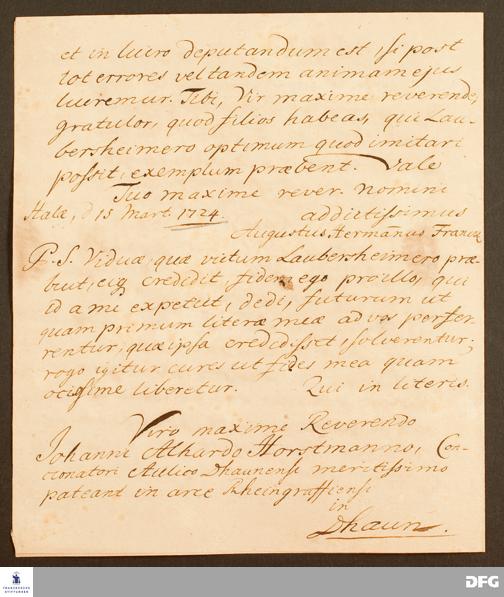 et in lucro deputandum est, si post
tot errores vel tandem animam ejus
lucremur. Tibi, Vir maxime reverende,
gratulor, quod filios habeas, qui Lau-
bersheimero optimum quod imitari
possit, exemplum præbent. Vale
Tuo maxime rever. Nomini
Halæ, d 15 Mart. 1724. addictissimus
Augustus Hermannus Francke
P. S. Viduæ, quæ victum Laubersheimero præ-
buit, eiq credidit, fidem ego pro illo, qui
id a me expetiit, dedi, futurum ut
quam primum literæ meæ ad vos perfer-
rentur, quæ ipsa credidisset, solverentur;
rogo igitur cures ut fides mea quam
ocissime liberetur. Qui in literis.
Viro maxime Reverendo
Johanni Alhardo Horstmanno, Con-
cionatori Aulico Dhaunensi meritissimo
pateant in arce Rheingraffiensi
in
Dhaun.
FRANCKESCHE
STIFTUNGEN
DFG